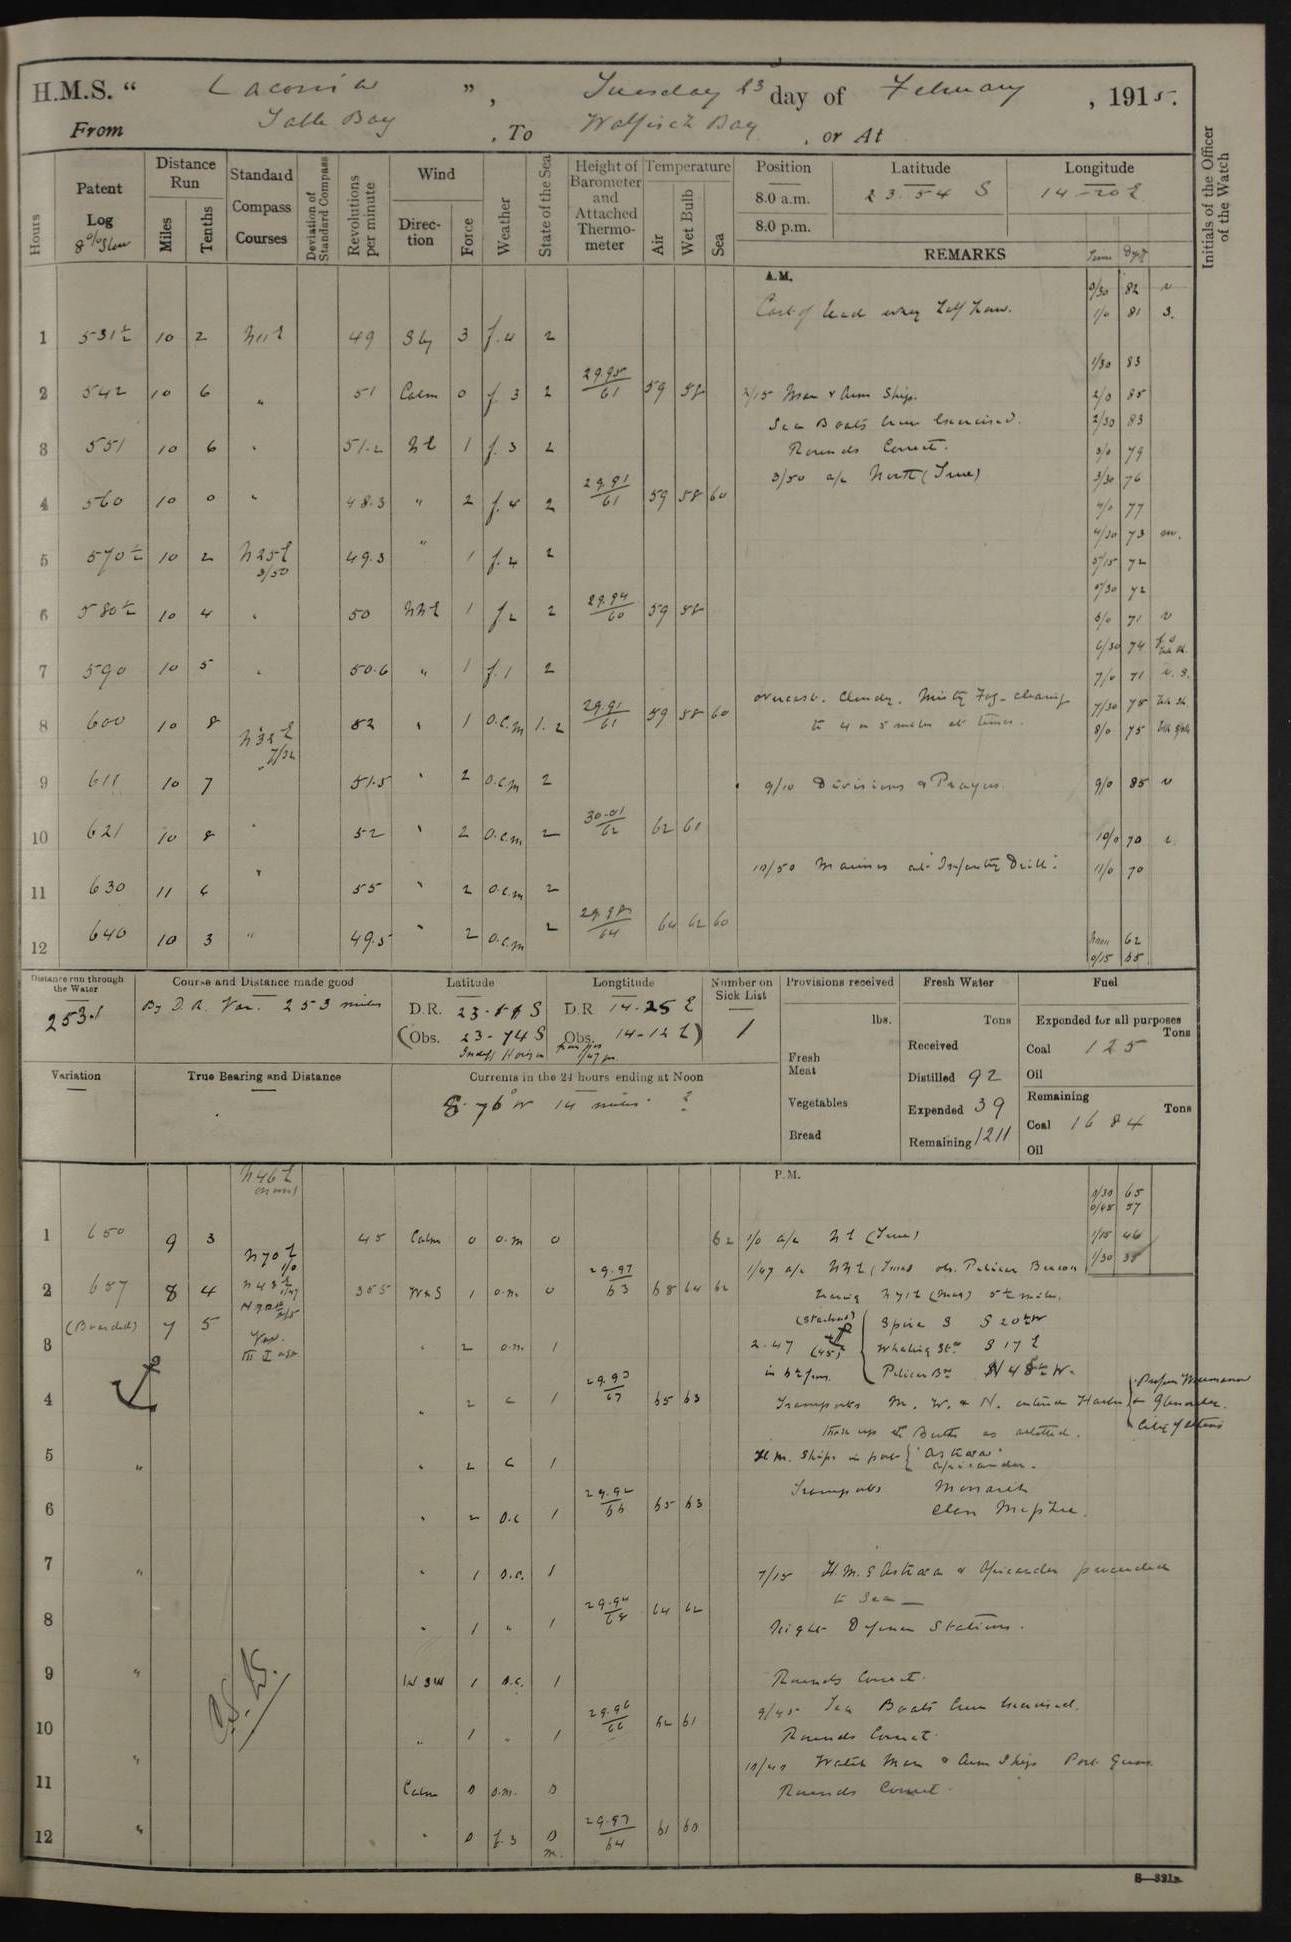 H.M.S. " Laconia ", Tuesday 23 day of February, 1915.
From Table Bay, To Walfisch Bay, or At
Hours
Patent Log
8% Slow
Distance Run
Miles
Tenths
Standard Compass Courses
Deviation of Standard Compass
Revolutions per minute
Wind
Direction
Force
Weather
State of the Sea
Height of Barometer and Attached Thermometer
Temperature
Air
Wet Bulb
Sea
Position
8.0 a.m.
8.0 p.m.
Latitude
23.54 S
Longitude
14-20 E
REMARKS
Time Depth
Initials of the Officer of the Watch
A.M.
0/30 82
Cast of lead every half hour.
1/0 81 S.
1 531½ 10 2 N11E 49 Sly 3 f.4 2
1/30 83
2 542 10 6 " 51 Calm 0 f.3 2 29.95/61 59 58
2/15 Man & Arm Ship.
2/0 85
Sea Boats Crew Exercised.
2/30 83
3 551 10 6 " 51.2 NE 1 f.3 2
Rounds Correct.
3/0 79
3/50 a/c North (True)
3/30 76
4 560 10 0 " 48.3 " 2 f.4 2 29.91/61 59 58 60
4/0 77
4/30 73 m.
5 570½ 10 2 N25E 3/50 49.3 " 1 f.4 2
5/15 72
5/30 72
6 580½ 10 4 " 50 NNE 1 f2 2 29.94/60 59 58
6/0 71
6/30 74
7 590 10 5 " 50.6 " 1 f.1 2
7/0 71
overcast. Cloudy. Misty Fog - clearing
7/30 75
8 600 10 8 N32E 7/32 52 " 1 o.c.m 1.2 29.91/61 59 58 60
to 4 or 5 miles at times.
8/0 75
9 611 10 7 " 51.5 " 2 o.c.m 2
9/10 Divisions & Prayers.
9/0 85
10 621 10 8 " 52 " 2 o.c.m 2 30.01/62 62 61
10/0 70
10/50 Marines at "Infantry Drill".
11/0 70
11 630 11 6 " 55 " 2 o.c.m 2
12 640 10 3 " 49.5 " 2 o.c.m 2 29.98/64 64 62 60
Noon 62
0/15 65
Distance run through the Water
253.1
Course and Distance made good
By D.R. Var. 253 miles
Latitude
D.R. 23-58 S
(Obs. 23-74 S
Indiff Horizon
Longtitude
D.R 14-25 E
Obs. 14-12 E)
Number on Sick List
1
Provisions received
lbs.
Fresh Meat
Vegetables
Bread
Fresh Water
Tons
Received
Distilled 92
Expended 39
Remaining 1211
Fuel
Expended for all purposes
Tons
Coal 125
Oil
Remaining
Tons
Coal 1684
Oil
Variation
True Bearing and Distance
Currents in the 24 hours ending at Noon
S. 76° W 14 miles. ?
P.M.
N46E
0/30 65
0/45 57
1 650 9 3 N70E 1/0 45 Calm 0 o.m 0 62
1/0 a/c NE (True)
1/15 46
1/30 38
1/47 a/c NNE (True) obs. Pelican Beacon
2 657 8 4 N48E 1/47 355 WxS 1 o.m. 0 29.97/63 68 64 62
bearing N71E (Mag) 5½ miles.
(Boarded) 7 5
3 Var. " 2 o.m. 1
2.47 (Starboard) (45) in 6½ fms.
Spire S S20½W
Whaling Stn S17E
Pelican Bn N48½W.
4 " 2 c 1 29.93/67 65 63
Transports M. W. & N. entered Harbour
& Glenorchy.
City of Athens
took up the Berths as allotted.
5 " " 2 c 1
H.M. Ships in port "Astraea"
Africander.
6 " 2 o.c 1 29.92/66 65 63
Transports Monarch
Clan McPhee.
7 " " 1 o.c. 1
7/15 H.M.S Astraea & Africander proceeded
to Sea —
8 " 1 " 1 29.94/68 64 62
Night Defence Stations.
9 " WSW 1 o.c. 1
Rounds Correct.
9/45 Sea Boats Crew Exercised.
10 " 1 " 1 29.96/66 62 61
Rounds Correct.
10/40 Watch Man & Arm Ship Port Guns.
11 " Calm 0 o.m. 0
Rounds Correct.
12 " " 0 f.3 0 m. 29.97/64 61 60
S—321B.